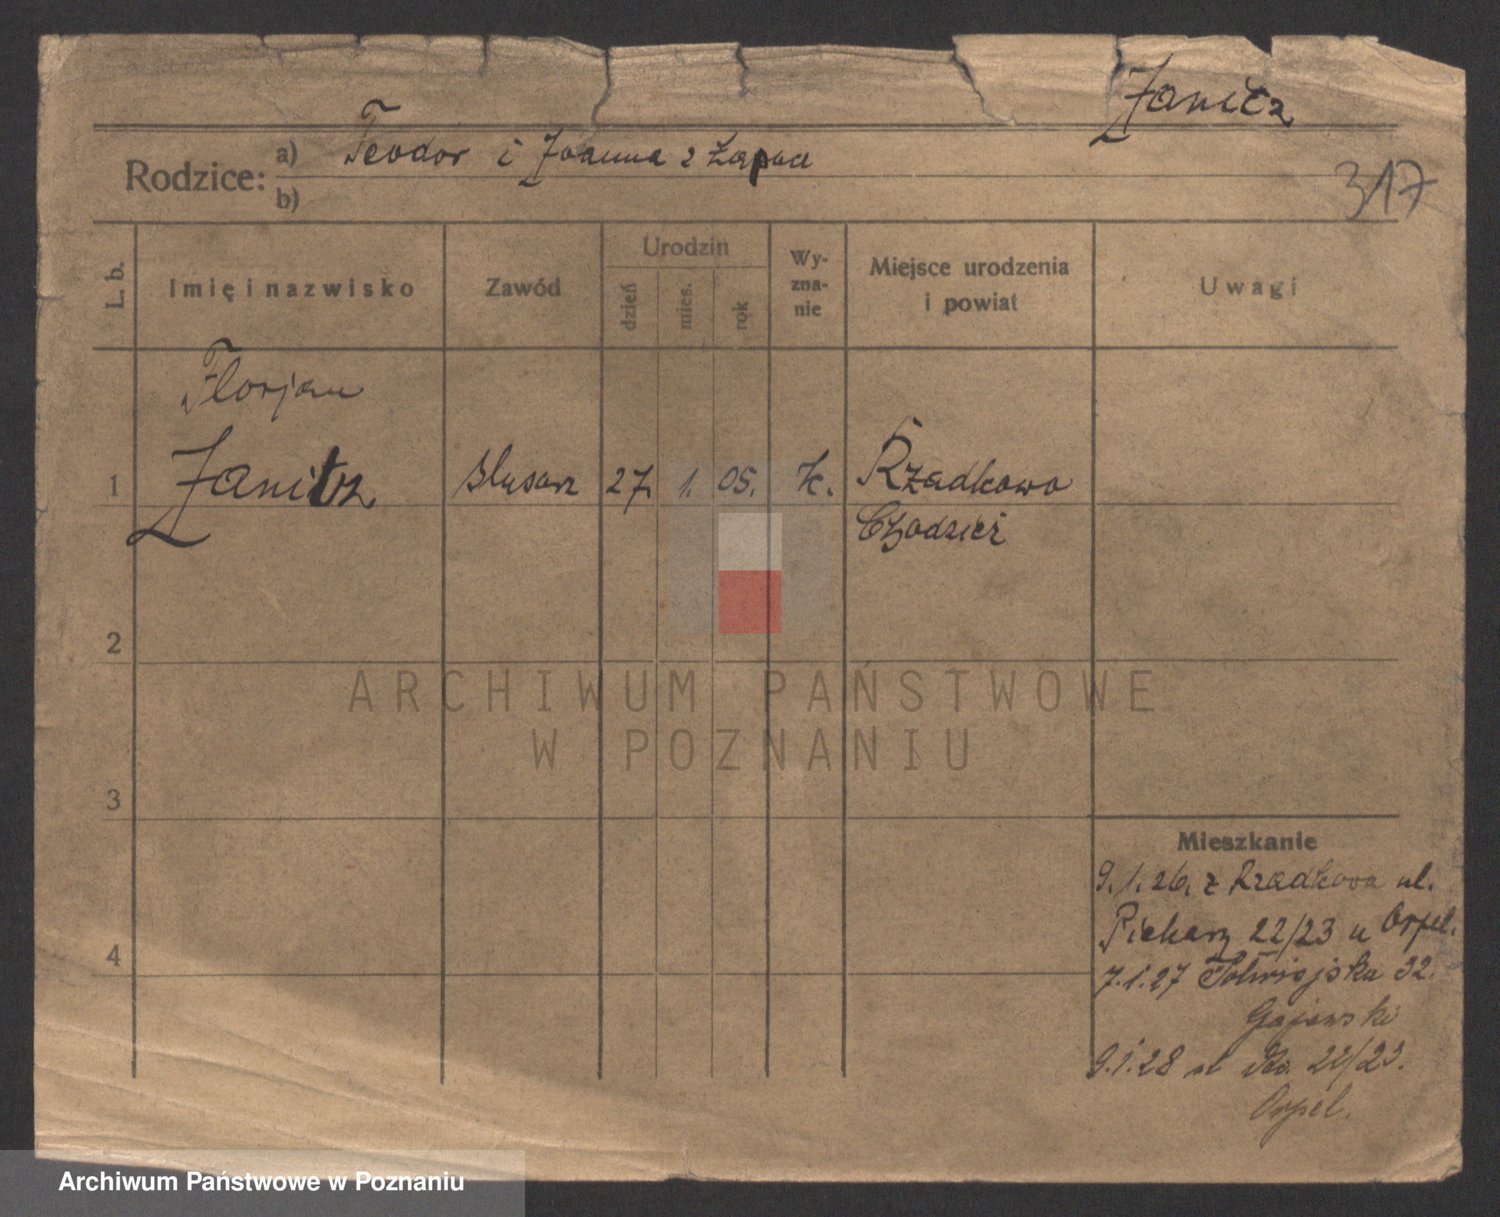 Janitz
Rodzice: a) Teodor i Joanna z
b)
317
L. b.
Imię i nazwisko
Zawód
Urodzin
dzień
mies.
rok
Wy-
zna-
nie
Miejsce urodzenia
i powiat
Uwagi
Florjan
1 Janitz ślusarz 27. 1. 05. k. Rzadkowo
Chodzież
2
3
4
Mieszkanie
9.1.26. z Rzadkowa ul.
Piekary 22/23 u Orpel.
7.1.27 Półwiejska 32.
Gajewski
9.1.28 22/23.
Orpel.
ARCHIWUM PAŃSTWOWE
W POZNANIU
Archiwum Państwowe w Poznaniu